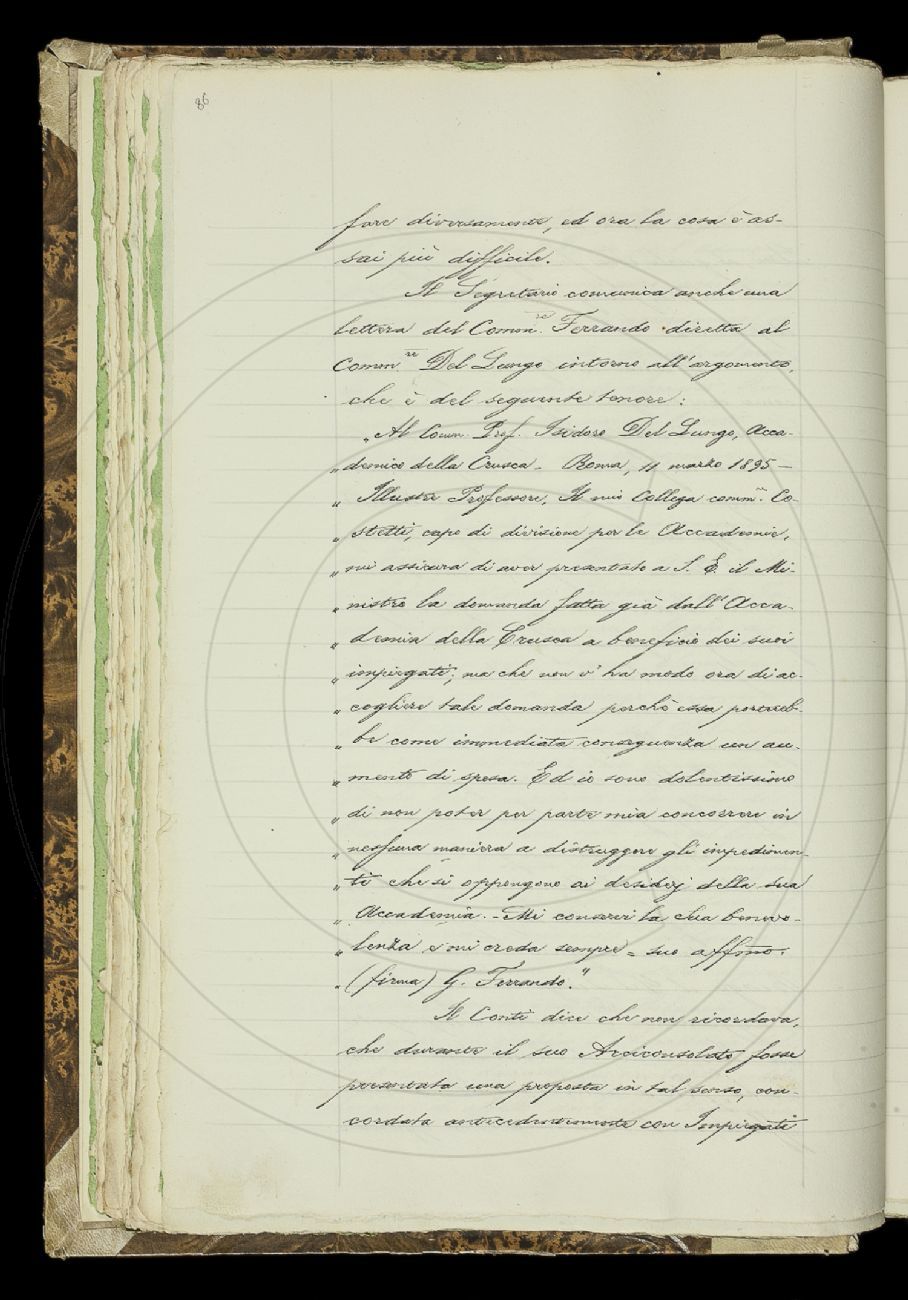 86
fare diversamente, ed ora la cosa è as-
sai più difficile.
Il Segretario comunica anche una
lettera del Comm.re Ferrando diretta al
Comm.re Del Lungo intorno all'argomento,
che è del seguente tenore:
„Al Comm. Prof. Isidoro Del Lungo, Acca-
„demico della Crusca - Roma, 11 marzo 1895 —
„ Illustre Professore, Il mio Collega comm.re Co-
„stetti, capo di divisione per le Accademie,
„mi assicura di aver presentato a S. E. il Mi-
„nistro la domanda fatta già dall'Acca-
„demia della Crusca a beneficio dei suoi
„impiegati; ma che non v'ha modo ora di ac-
„cogliere tale domanda perchè essa porereb-
„be come immediata conseguenza un au-
„mento di spesa. Ed io sono dolentissimo
„di non poter per parte mia concorrere in
„nessuna maniera a distruggere gli impedimen-
„ti che si oppongono ai desiderj della sua
„Accademia. - Mi conservi la sua benevo-
„lenza e mi creda sempre = suo affmo.
„(firma) G. Ferrando."
Il Conti dice che non ricordava,
che durante il suo Arciconsolato fosse
presentata una proposta in tal senso, con-
cordata antecedentemente con Impiegati